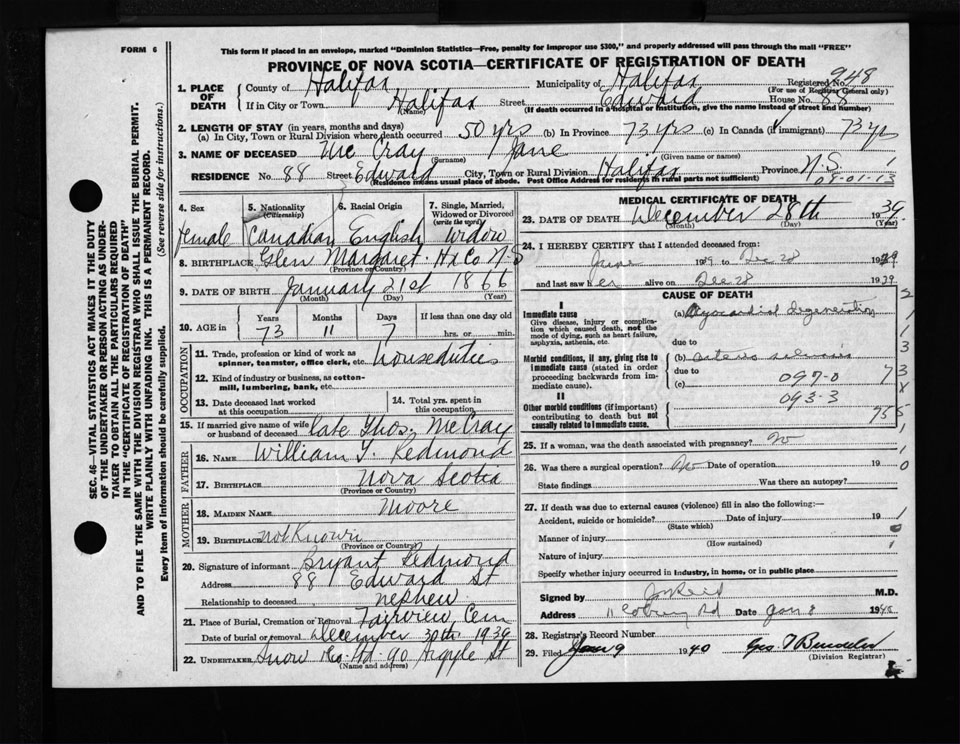 FORM 6
This form if placed in an envelope, marked "Dominion Statistics—Free, penalty for improper use $300," and properly addressed will pass through the mail "FREE"
PROVINCE OF NOVA SCOTIA—CERTIFICATE OF REGISTRATION OF DEATH
SEC. 46—VITAL STATISTICS ACT MAKES IT THE DUTY
OF THE UNDERTAKER OR PERSON ACTING AS UNDER-
TAKER TO OBTAIN ALL THE PARTICULARS REQUIRED
IN THE "CERTIFICATE OF REGISTRATION OF DEATH"
AND TO FILE THE SAME WITH THE DIVISION REGISTRAR WHO SHALL ISSUE THE BURIAL PERMIT.
WRITE PLAINLY WITH UNFADING INK. THIS IS A PERMANENT RECORD.
Every item of information should be carefully supplied. (See reverse side for instructions.)
1. PLACE OF DEATH
County of Halifax Municipality of Halifax Registered No. 948
(For use of Registrar General only)
If in City or Town Halifax Street Edward House No. 88
(Name) (If death occurred in a hospital or institution, give the name instead of street and number)
2. LENGTH OF STAY (in years, months and days)
(a) In City, Town or Rural Division where death occurred 50 yrs (b) In Province 73 yrs (c) In Canada (if immigrant) 73 yrs
3. NAME OF DECEASED Mc Cray Jane
(Surname) (Given name or names)
RESIDENCE No. 88 Street Edward City, Town or Rural Division Halifax Province N.S.
(Residence means usual place of abode. Post Office Address for residents in rural parts not sufficient) 08-01-13
4. Sex female
5. Nationality (Citizenship) Canadian
6. Racial Origin English
7. Single, Married, Widowed or Divorced (write the word) Widow
8. BIRTHPLACE Glen Margaret. Hx Co N.S
(Province or Country)
9. DATE OF BIRTH January 21st 1866
(Month) (Day) (Year)
10. AGE in Years 73 Months 11 Days 7 If less than one day old hrs. or min.
OCCUPATION
11. Trade, profession or kind of work as spinner, teamster, office clerk, etc. Houseduties
12. Kind of industry or business, as cotton-mill, lumbering, bank, etc.
13. Date deceased last worked at this occupation
14. Total yrs. spent in this occupation
15. If married give name of wife or husband of deceased late Thos. McCray
FATHER
16. NAME William J. Redmond
17. BIRTHPLACE Nova Scotia
(Province or Country)
MOTHER
18. MAIDEN NAME Moore
19. BIRTHPLACE not Known
(Province or Country)
20. Signature of informant Bryant Redmond
Address 88 Edward St
Relationship to deceased nephew
21. Place of Burial, Cremation or Removal Fairview Cem
Date of burial or removal December 30th 1939
22. UNDERTAKER Snow Co. Ltd. 90 Argyle St
(Name and address)
MEDICAL CERTIFICATE OF DEATH
23. DATE OF DEATH December 28th 1939
(Month) (Day) (Year)
24. I HEREBY CERTIFY that I attended deceased from:
June 1939 to Dec 28 1939
and last saw her alive on Dec 28 1939
CAUSE OF DEATH
I
Immediate cause
Give disease, injury or complication which caused death, not the mode of dying, such as heart failure, asphyxia, asthenia, etc.
(a) Myocardial degeneration
due to
Morbid conditions, if any, giving rise to immediate cause (stated in order proceeding backwards from immediate cause)
(b)
due to
(c) 097-0
093-3
II
Other morbid conditions (if important) contributing to death but not causally related to immediate cause.
25. If a woman, was the death associated with pregnancy? No
26. Was there a surgical operation? No Date of operation 19
State findings Was there an autopsy?
27. If death was due to external causes (violence) fill in also the following:—
Accident, suicide or homicide? Date of injury 19
(State which)
Manner of injury
(How sustained)
Nature of injury
Specify whether injury occurred in industry, in home, or in public place
Signed by M.D.
Address 11 Coburg Rd Date Jan 8 1940
28. Registrar's Record Number
29. Filed Jan 9 1940
(Division Registrar)